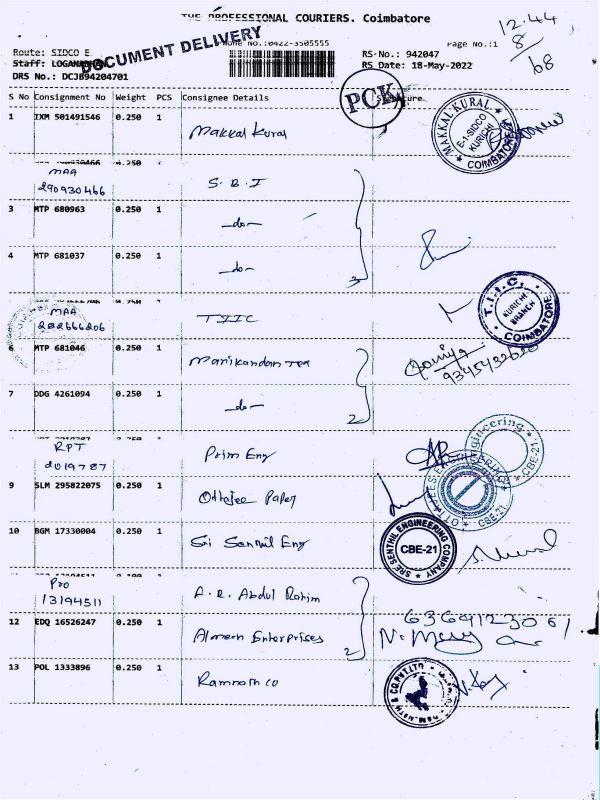 THE PROFESSIONAL COURIERS. Coimbatore
12.44
8/68
Route: SIDCO E
Phone No.:0422-3505555
Page No.:1
DOCUMENT DELIVERY
RS-No.: 942047
RS Date: 18-May-2022
DRS No.: DCJB94204701
PCK
S No Consignment No Weight PCS Consignee Details Signature
1 IXM 501491546 0.250 1 Makkal Kural
MAKKAL KURAL E-1-SIDCO KURICHI COIMBATORE
MAA
290930466 S.B.I
3 MTP 680963 0.250 1 -do-
4 MTP 681037 0.250 1 -do-
3
MAA
282666206 TIIC
T.I.I.C. KURICHI BRANCH COIMBATORE
6 MTP 681046 0.250 1 Manikandan Tea
7 DDG 4261094 0.250 1 -do-
2
RPT
2019787 Prim Eng
9 SLM 295822075 0.250 1 Ottojee Paper
CBE-21
10 BGM 17330004 0.250 1 Sri Senthil Eng
SRE SENTHIL ENGINEERING COMPANY CBE-21
Pro
13194511 A.R. Abdul Rahim
12 EDQ 16526247 0.250 1 Almeen Enterprises
2
13 POL 1333896 0.250 1 Ramnath co